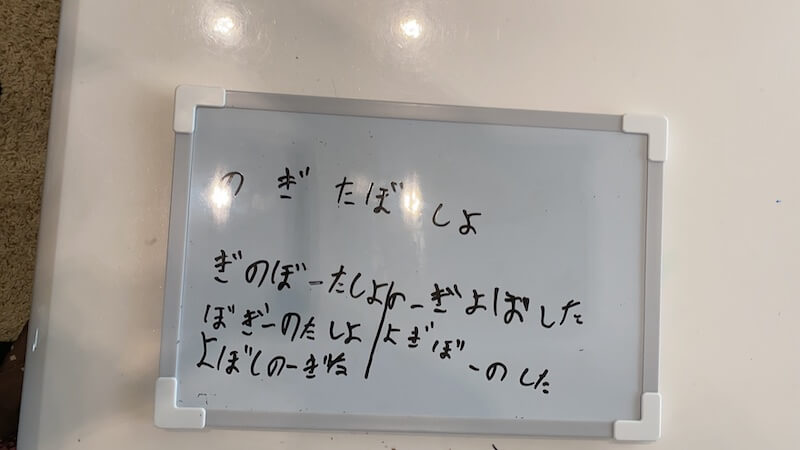 の ぎ たぼ ー しよ
ぎのぼーたしよ/の ー ぎよぼした
ぼぎーのたしよ/よぎぼーのした
よぼしのーぎた